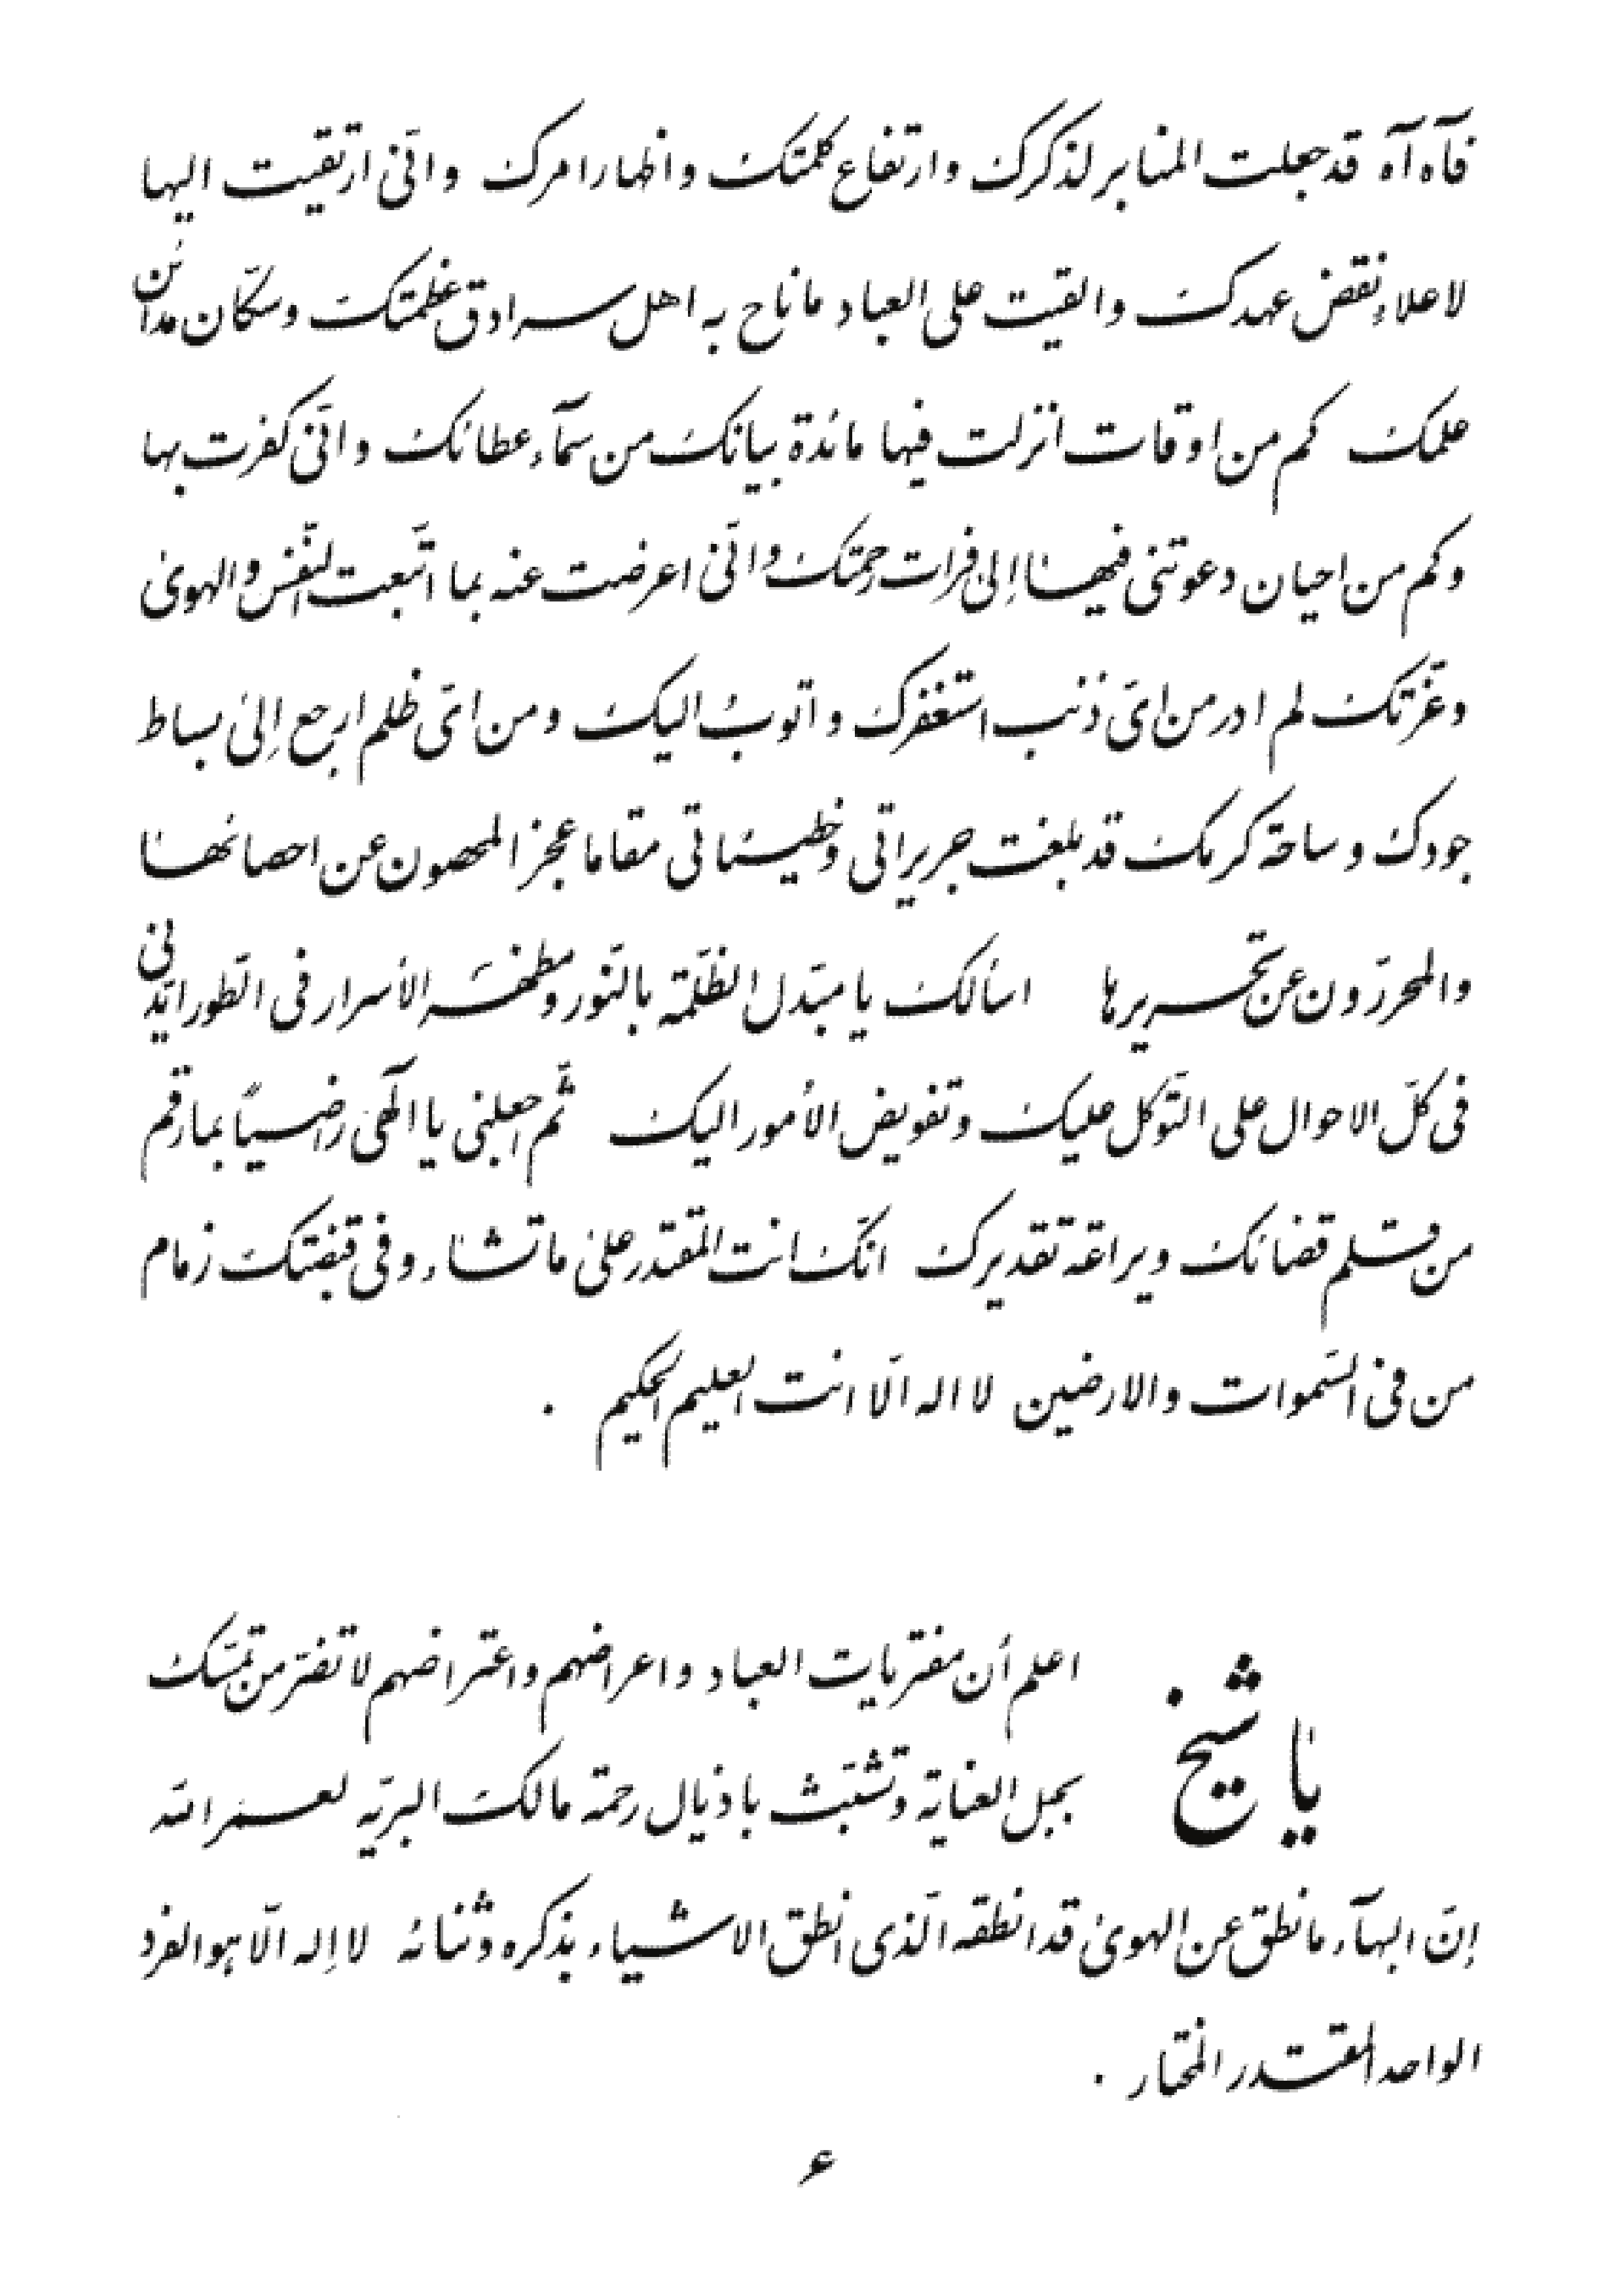 فآه آه قد جعلت المنابر لذكرك وارتفاع كلمتك واظهار امرك وانّی ارتقيت اليها
لاعلاء نقض عهدك والقيت علی العباد ما ناح به اهل سرادق عظمتك وسكّان مدائن
علمك كم من اوقات انزلت فيها مائدة بيانك من سمآء عطائك وانّی كفرت بها
وكم من احيان دعوتنی فيها إلی فرات رحمتك وانّی اعرضت عنه بما اتّبعت النّفس والهوی
وعزّتك لم ادر من ایّ ذنب استغفرك واتوبُ اليك ومن ایّ ظلم ارجع إلی بساط
جودك وساحة كرمك قد بلغت جريراتی وخطيئاتی مقاما عجز المحصون عن احصائها
والمحرّرون عن تحريرها اسألك يا مبدّل الظّلمة بالنّور ومظهر الأسرار فی الطّور ايّدنی
فی كلّ الاحوال علی التّوكّل عليك وتفويض الأمور اليك ثمّ اجعلنی يا الهی راضيًا بما رقم
من قلم قضائك ويراعة تقديرك انّك انت المقتدر علی ما تشاء وفی قبضتك زمام
من فی السّموات والارضين لا اله الّا انت العليم الحكيم .
يا شيخ
اعلم أن مفتريات العباد واعراضهم واعتراضهم لا تضرّ من تمسّك
بحبل العناية وتشبّث باذيال رحمة مالك البريّه لعمر الله
إنّ البهآء ما نطق عن الهوی قد انطقه الّذی انطق الاشياء بذكره وثنائه لا إله الّا هو الفرد
الواحد المقتدر المختار .
۶